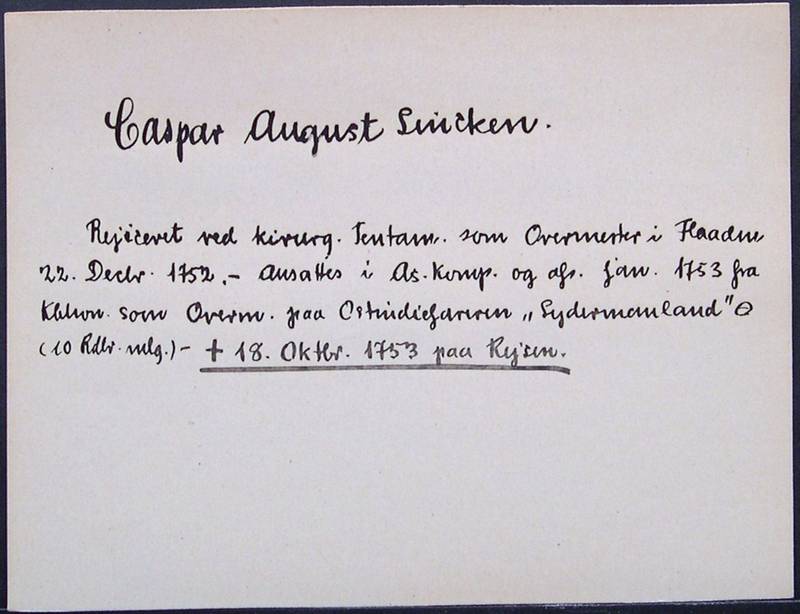 Caspar August Lincken.
Rejiceret ved kirurg. Tentam. som Overmester i Flaaden
22. Decbr. 1752. - Ansattes i As. komp. og afs. jan. 1753 fra
Kbhvn. som Overm. paa Ostindiefareren „Sydermanland"
(10 Rdlr. mlg.) - + 18. Oktbr. 1753 paa Rejsen.